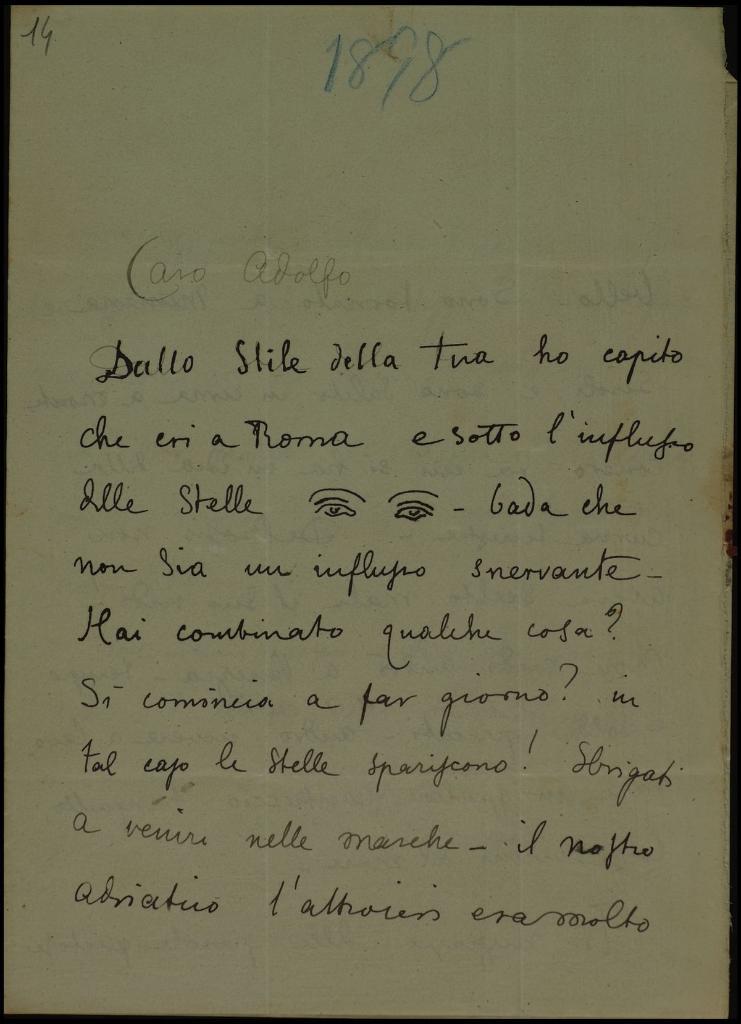 14
1898
Caro Adolfo
Dallo Stile della tua ho capito
che eri a Roma e sotto l'influsso
delle Stelle - bada che
non sia un influsso snervante -
Hai combinato qualche cosa?
Si comincia a far giorno? in
tal caso le stelle spariscono! Sbrigati
a venire nelle marche - il nostro
adriatico l'altroieri era molto